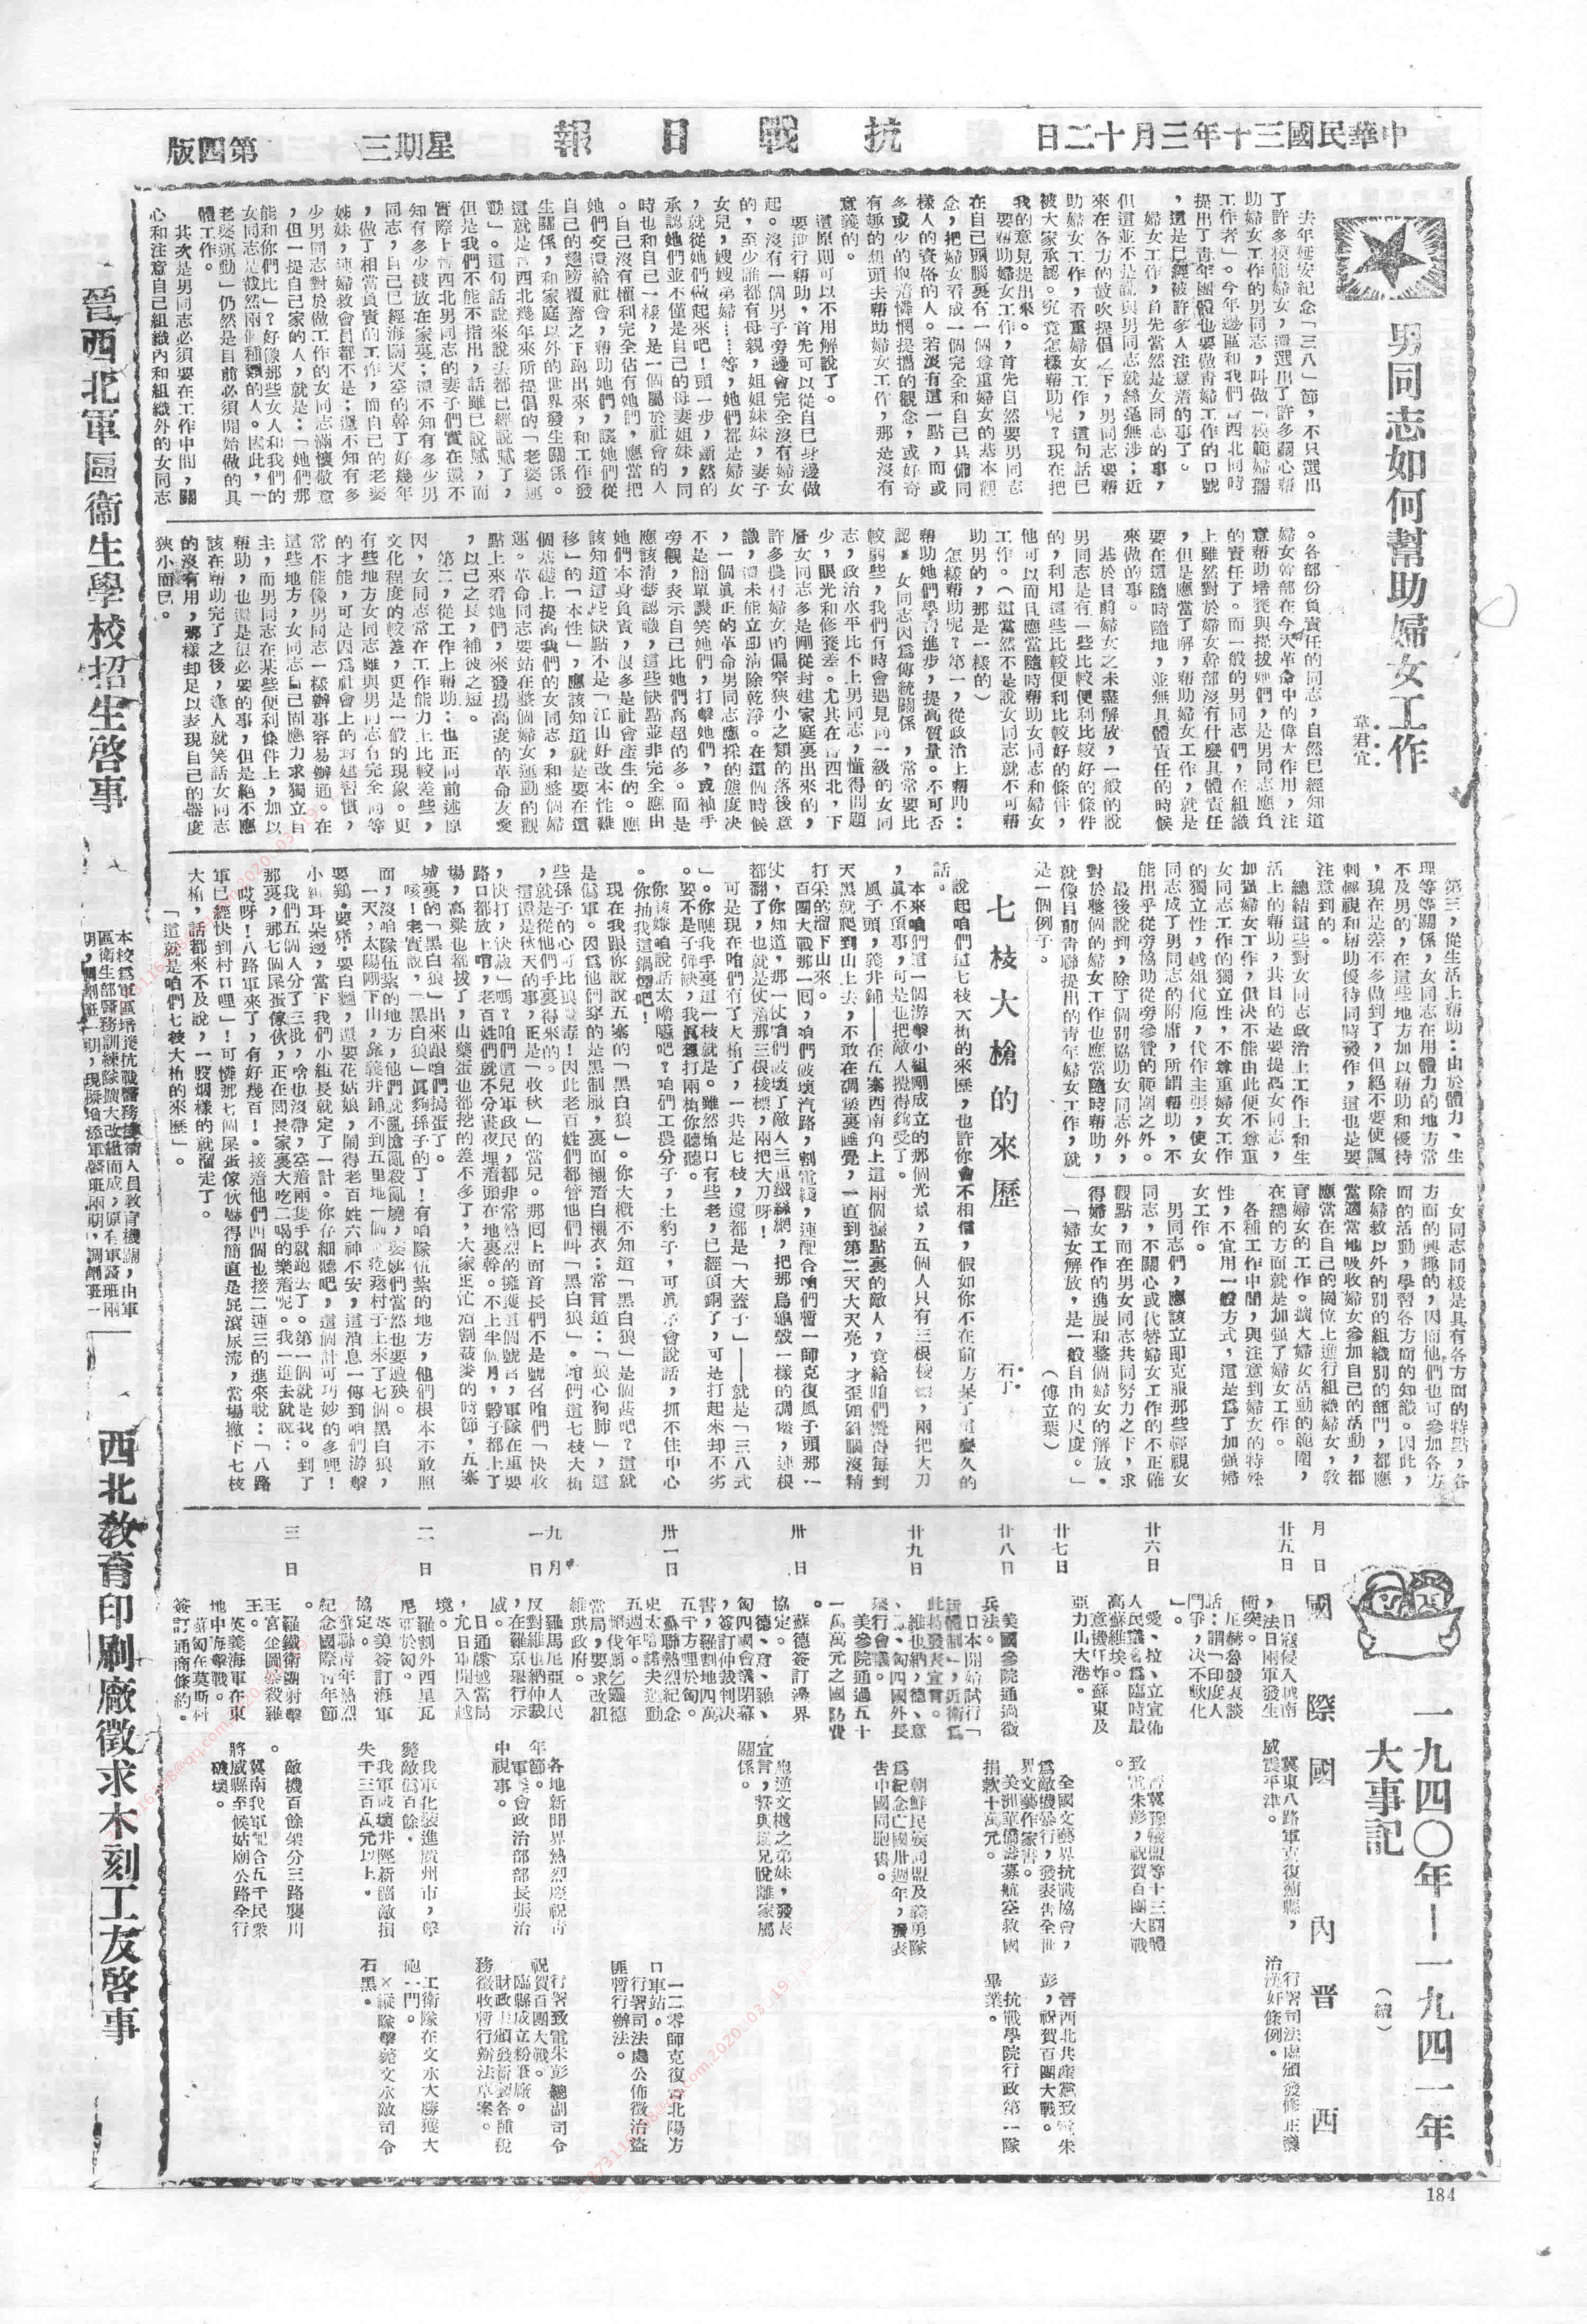 中華民國三十年三月十二日
抗戰日報
星期三
第四版
男同志如何幫助婦女工作
韋君宜
去年延安紀念「三八」節，不只選出
了許多模範婦女，還選出了許多關心幫
助婦女工作的男同志，叫做「模範婦孺
工作者」。今年邊區和我們晉西北同時
提出了青年團體也要做青婦工作的口號
，這是已經被許多人注意着的事了。
婦女工作，首先當然是女同志的事，
但這並不是說與男同志就絲毫無涉；近
來在各方的鼓吹提倡之下，男同志要幫
助婦女工作，看重婦女工作，這句話已
被大家承認。究竟怎樣幫助呢？現在把
我的意見提出來。
要幫助婦女工作，首先自然要男同志
在自己頭腦裏有一個尊重婦女的基本觀
念，把婦女看成一個完全和自己具備同
樣人的資格的人。若沒有這一點，而或
多或少的抱着憐憫提攜的觀念，或好奇
有趣的想頭去幫助婦女工作，那是沒有
意義的。
這原則可以不用解說了。
要進行幫助，首先可以從自己身邊做
起。沒有一個男子旁邊會完全沒有婦女
的，至少誰都有母親，姐姐妹妹，妻子
女兒，嫂嫂弟婦……等，她們都是婦女
，就從她們做起來吧！頭一步，斷然的
承認她們並不僅是自己的母妻姐妹，同
時也和自己一樣，是一個屬於社會的人
。自己沒有權利完全佔有她們，應當把
她們交還給社會，幫助她們，讓她們從
自己的翅膀覆蓋之下跑出來，和工作發
生關係，和家庭以外的世界發生關係。
這就是晉西北幾年來所提倡的「老婆運
動」。這句話說來說去都已經說膩了，
但是我們不能不指出，話雖已說膩，而
實際上晉西北男同志的妻子們實在還不
知有多少被放在家裏；還不知有多少男
同志，自己已經海闊天空的幹了好幾年
，做了相當負責的工作，而自己的老婆
姊妹，連婦救會員都不是；還不知有多
少男同志對於做工作的女同志滿懷敬意
，但一提自己家的人，就是：「她們那
能和你們比」？好像那些女人和我們的
女同志是截然兩個種類的人。因此，一
老婆運動」仍然是目前必須開始做的具
體工作。
其次是男同志必須要在工作中間，關
心和注意自己組織內和組織外的女同志
。各部份負責任的同志，自然已經知道
婦女幹部在今天革命中的偉大作用，注
意幫助培養與提拔她們，是男同志應負
的責任了。而一般的男同志們，在組織
上雖然對於婦女幹部沒有什麼具體責任
，但是應當了解，幫助婦女工作，就是
要在這隨時隨地，並無具體責任的時候
來做的事。
基於目前婦女之未盡解放，一般的說
男同志是有一些比較便利比較好的條件
的，利用這些比較便利比較好的條件，
他可以而且應當隨時幫助女同志和婦女
工作。（這當然不是說女同志就不可幫
助男的，那是一樣的）
怎樣幫助呢？第一，從政治上幫助：
幫助她們學習進步，提高質量。不可否
認，女同志因爲傳統關係，常常要比
較弱些，我們有時會遇見同一級的女同
志，政治水平比不上男同志，懂得問題
少，眼光和修養差。尤其在晉西北，下
層女同志多是剛從封建家庭裏出來的，
許多農村婦女的偏窄狹小之類的落後意
識，還未能立即清除乾淨。在這個時候
，一個眞正的革命男同志應採的態度決
不是簡單譏笑她們，打擊她們，或袖手
旁觀，表示自己比她們高超的多。而是
應該清楚認識，這些缺點並非完全應由
她們本身負責，很多是社會產生的。應
該知道這些缺點不是「江山好改本性難
移」的「本性」，應該知道就是要在這
個基礎上提高我們的女同志，和整個婦
運。革命同志要站在整個婦女運動的觀
點上來看她們，來發揚高度的革命友愛
，以己之長，補彼之短。
第二，從工作上幫助：也正同前述原
因，女同志常在工作能力上比較差些，
文化程度的較差，更是一般的現象。更
有些地方女同志雖與男同志有完全同等
的才能，可是因爲社會上的封建習慣，
常不能像男同志一樣辦事容易辦通。在
這些地方，女同志自己固應力求獨立自
主，而男同志在某些便利條件上，加以
幫助，也還是很必要的事，但是絕不應
該在幫助完了之後，逢人就笑話女同志
的沒有用，那樣却足以表現自己的器度
狹小而已。
第三，從生活上幫助：由於體力、生
理等等關係，女同志在用體力的地方常
不及男的，在這些地方加以幫助和優待
，現在是差不多做到了，但絕不要使諷
刺輕視和幫助優待同時發作，這也是要
注意到的。
總結這些對女同志政治上工作上和生
活上的幫助，其目的是要提高女同志，
加强婦女工作，但決不能由此便不尊重
女同志工作的獨立性，不尊重婦女工作
的獨立性，越俎代庖，代作主張，使女
同志成了男同志的附庸，所謂幫助，不
能出乎從旁協助從旁參贊的範圍之外。
最後說到，除了個別協助女同志外，
對於整個的婦女工作也應當隨時幫助，
就像目前青聯提出的青年婦女工作，就
是一個例子。
女同志同樣是具有各方面的特點，各
方面的興趣的，因而他們也可參加各方
面的活動，學習各方面的知識。因此，
除婦救以外的別的組織別的部門，都應
當適當地吸收婦女參加自己的活動，都
應當在自己的崗位上進行組織婦女，敎
育婦女的工作。擴大婦女活動的範圍，
在總的方面就是加强了婦女工作。
各種工作中間，與注意到婦女的特殊
性，不宜用一般方式，這是爲了加强婦
女工作。
男同志們，應該立即克服那些輕視女
同志，不關心或代替婦女工作的不正確
觀點，而在男女同志共同努力之下，求
得婦女工作的進展和整個婦女的解放。
「婦女解放，是一般自由的尺度。」
（傅立葉）
七枝大槍的來歷
石丁
說起咱們這七枝大槍的來歷，也許你會不相信，假如你不在前方呆了這麼久的
話。
本來咱們這一個游擊小組剛成立的那個光景，五個人只有三根梭標，兩把大刀
，眞不頂事，可是也把敵人攪得夠受了。
風子頭，義井鋪——在五寨西南角上這兩個據點裏的敵人，竟給咱們攪得每到
天黑就爬到山上去，不敢在碉堡裏睡覺，一直到第二天大天亮，才歪頭斜腦沒精
打采的溜下山來。
百團大戰那一回，咱們破壞汽路，割電綫，連配合咱們暫一師克復風子頭那一
仗，你知道，那一仗咱們破壞了敵人三重鐵絲網，把那烏龜殼一樣的碉堡，連根
都翻了，也就是仗着那三根梭標，兩把大刀呀！
可是現在咱們有了大槍了，一共是七枝，還都是「大蓋子」——就是「三八式
」。你瞧我手裏這一枝就是。雖然槍口有些老，已經頂銅了，可是打起來却不劣
。要不是子彈缺，我眞想打兩槍你聽聽。
你該嫌咱說話太嚕囌吧？咱們工農分子，土豹子，可眞不會說話，抓不住中心
。你抽我這鍋煙吧！
現在我跟你說說五寨的「黑白狼」。你大概不知道「黑白狼」是個啥吧？這就
是僞軍。因爲他們穿的是黑制服，裏面襯着白襯衣；常言道：「狼心狗肺」，這
些孫子的心可比狼還毒！因此老百姓們都管他們叫「黑白狼」。咱們這七枝大槍
，就是從他們手裏得來的。
這還是秋天的事，正是「收秋」的當兒。那囘上面首長們不是號召咱們「快收
，快打，快藏」嗎？咱們這兒軍政民，都非常熱烈的擁護這個號召，軍隊在重要
路口都放上哨，老百姓們就不分晝夜埋着頭在地裏幹。不上半個月，穀子都上了
場，高粱也都拔了，山藥蛋也都挖的差不多了，大家正忙着割莜麥的時節，五寨
城裏的「黑白狼」出來跟咱們搗蛋了。
咳！老實說，「黑白狼」眞夠孫子的了！有咱隊伍紮的地方，他們根本不敢照
面，沒咱隊伍紮的地方，他們就亂搶亂殺亂燒，婆姨們當然也要遭殃。
一天，太陽剛下山，靠義井鋪不到五里地一個疙瘩村子上來了七個黑白狼，
要鷄，要猪，要白麵，還要花姑娘，鬧得老百姓六神不安，這消息一傳到咱們游擊
小組耳朵邊，當下我們小組長就定了一計。你仔細聽吧，這個計可巧妙的多哩！
我們五個人分了三批，啥也沒帶，空着兩隻手就跑去了。第一個就是我。到了
那裏，那七個屎蛋傢伙，正在閭長家裏大吃二喝的樂着呢。我一進去就說：
「哎呀！八路軍來了，有好幾百！」接着他們四個也接二連三的進來說：「八路
軍已經快到村口哩」！可憐那七個屎蛋傢伙嚇得簡直是屁滾尿流，當場撇下七枝
大槍，話都來不及說，一股烟樣的就溜走了。
「這就是咱們七枝大槍的來歷」。
一九四〇年—一九四一年
大事記
（續）
月 日
國際
國內
晉西
廿五日
日寇侵入越南
，法日兩軍發生
衝突。
尼赫魯發表談
話：謂「印度人
鬥爭，決不軟化
」。
冀東八路軍克復薊縣，
威震平津。
行署司法處頒發修正懲
治漢奸條例。
廿六日
愛、拉、立宣佈
人民議會爲臨時最
高蘇維埃。
意機轟炸蘇東及
亞力山大港。
晉冀豫犧盟等十三團體
致電朱彭，祝賀百團大戰
。
廿七日
全國文藝界抗戰協會，
爲敵機暴行，發表告全世
界文藝作家書。
美洲華僑籌募航空救國
捐款十萬元。
晉西北共產黨致電朱
彭，祝賀百團大戰。
抗戰學院行政第一隊
畢業。
廿八日
美國參院通過徵
兵法。
日本開始試行「
新體制」，近衛爲
此特發表宣言。
廿九日
維也納，德、意
、羅、匈四國外長
舉行會議。
美參院通過五十
一萬萬元之國防費
朝鮮民族同盟及義勇隊
爲紀念亡國卅週年，發表
告中國同胞書。
卅日
蘇德簽訂邊界
協定。
德、意、羅、
匈四國會議閉幕
，簽訂仲裁判決
書，羅割地四萬
五千方理於匈。
施逆文樾之弟妹，發表
宣言，誓與逆兄脫離家屬
關係。
卅一日
蘇聯熱烈紀念
史太哈諾夫運動
五週年。
一二零師克復晉北陽方
口車站。
行署司法處公佈徵治盜
匪暫行辦法。
九月一日
羅馬尼亞人民
反對維也納仲裁
，在羅京舉行示
威。
各地新聞界熱烈慶祝青
年節。
軍委會政治部部長張治
中視事。
行署致電朱彭總副司令
祝賀百團大戰。
臨縣成立粉筆廠。
財政處頒發新製各種稅
務徵收暫行辦法草案。
二日
羅割外西里瓦
尼亞於匈。
英美簽訂海軍
協定。
蘇聯青年熱烈
紀念國際青年節
。
我軍化裝進廣州市，擊
斃敵僞百餘。
我軍破壞井陘新礦敵損
失千三百萬元以上。
工衛隊在文水大勝獲大
砲一門。
×縱隊擊斃文水敵司令
石黑。
三日
羅鐵衛團射擊
王宮企圖暴殺羅
王。
英義海軍在東
地中海擊戰。
蘇匈在莫斯科
簽訂通商條約。
敵機百餘架分三路襲川
。
冀南我軍配合五千民衆
將威縣至候姑廟公路全行
破壞。
晉西北軍區衞生學校招生啓事
本校爲軍區培養抗戰醫務技術人員敎育機關，由軍
區衛生部醫務訓練隊擴大改組而成，原有軍醫班兩
期，調劑班一期，現擬增添軍醫班兩期，調劑班一
西北敎育印刷廠徵求木刻工友啓事
184